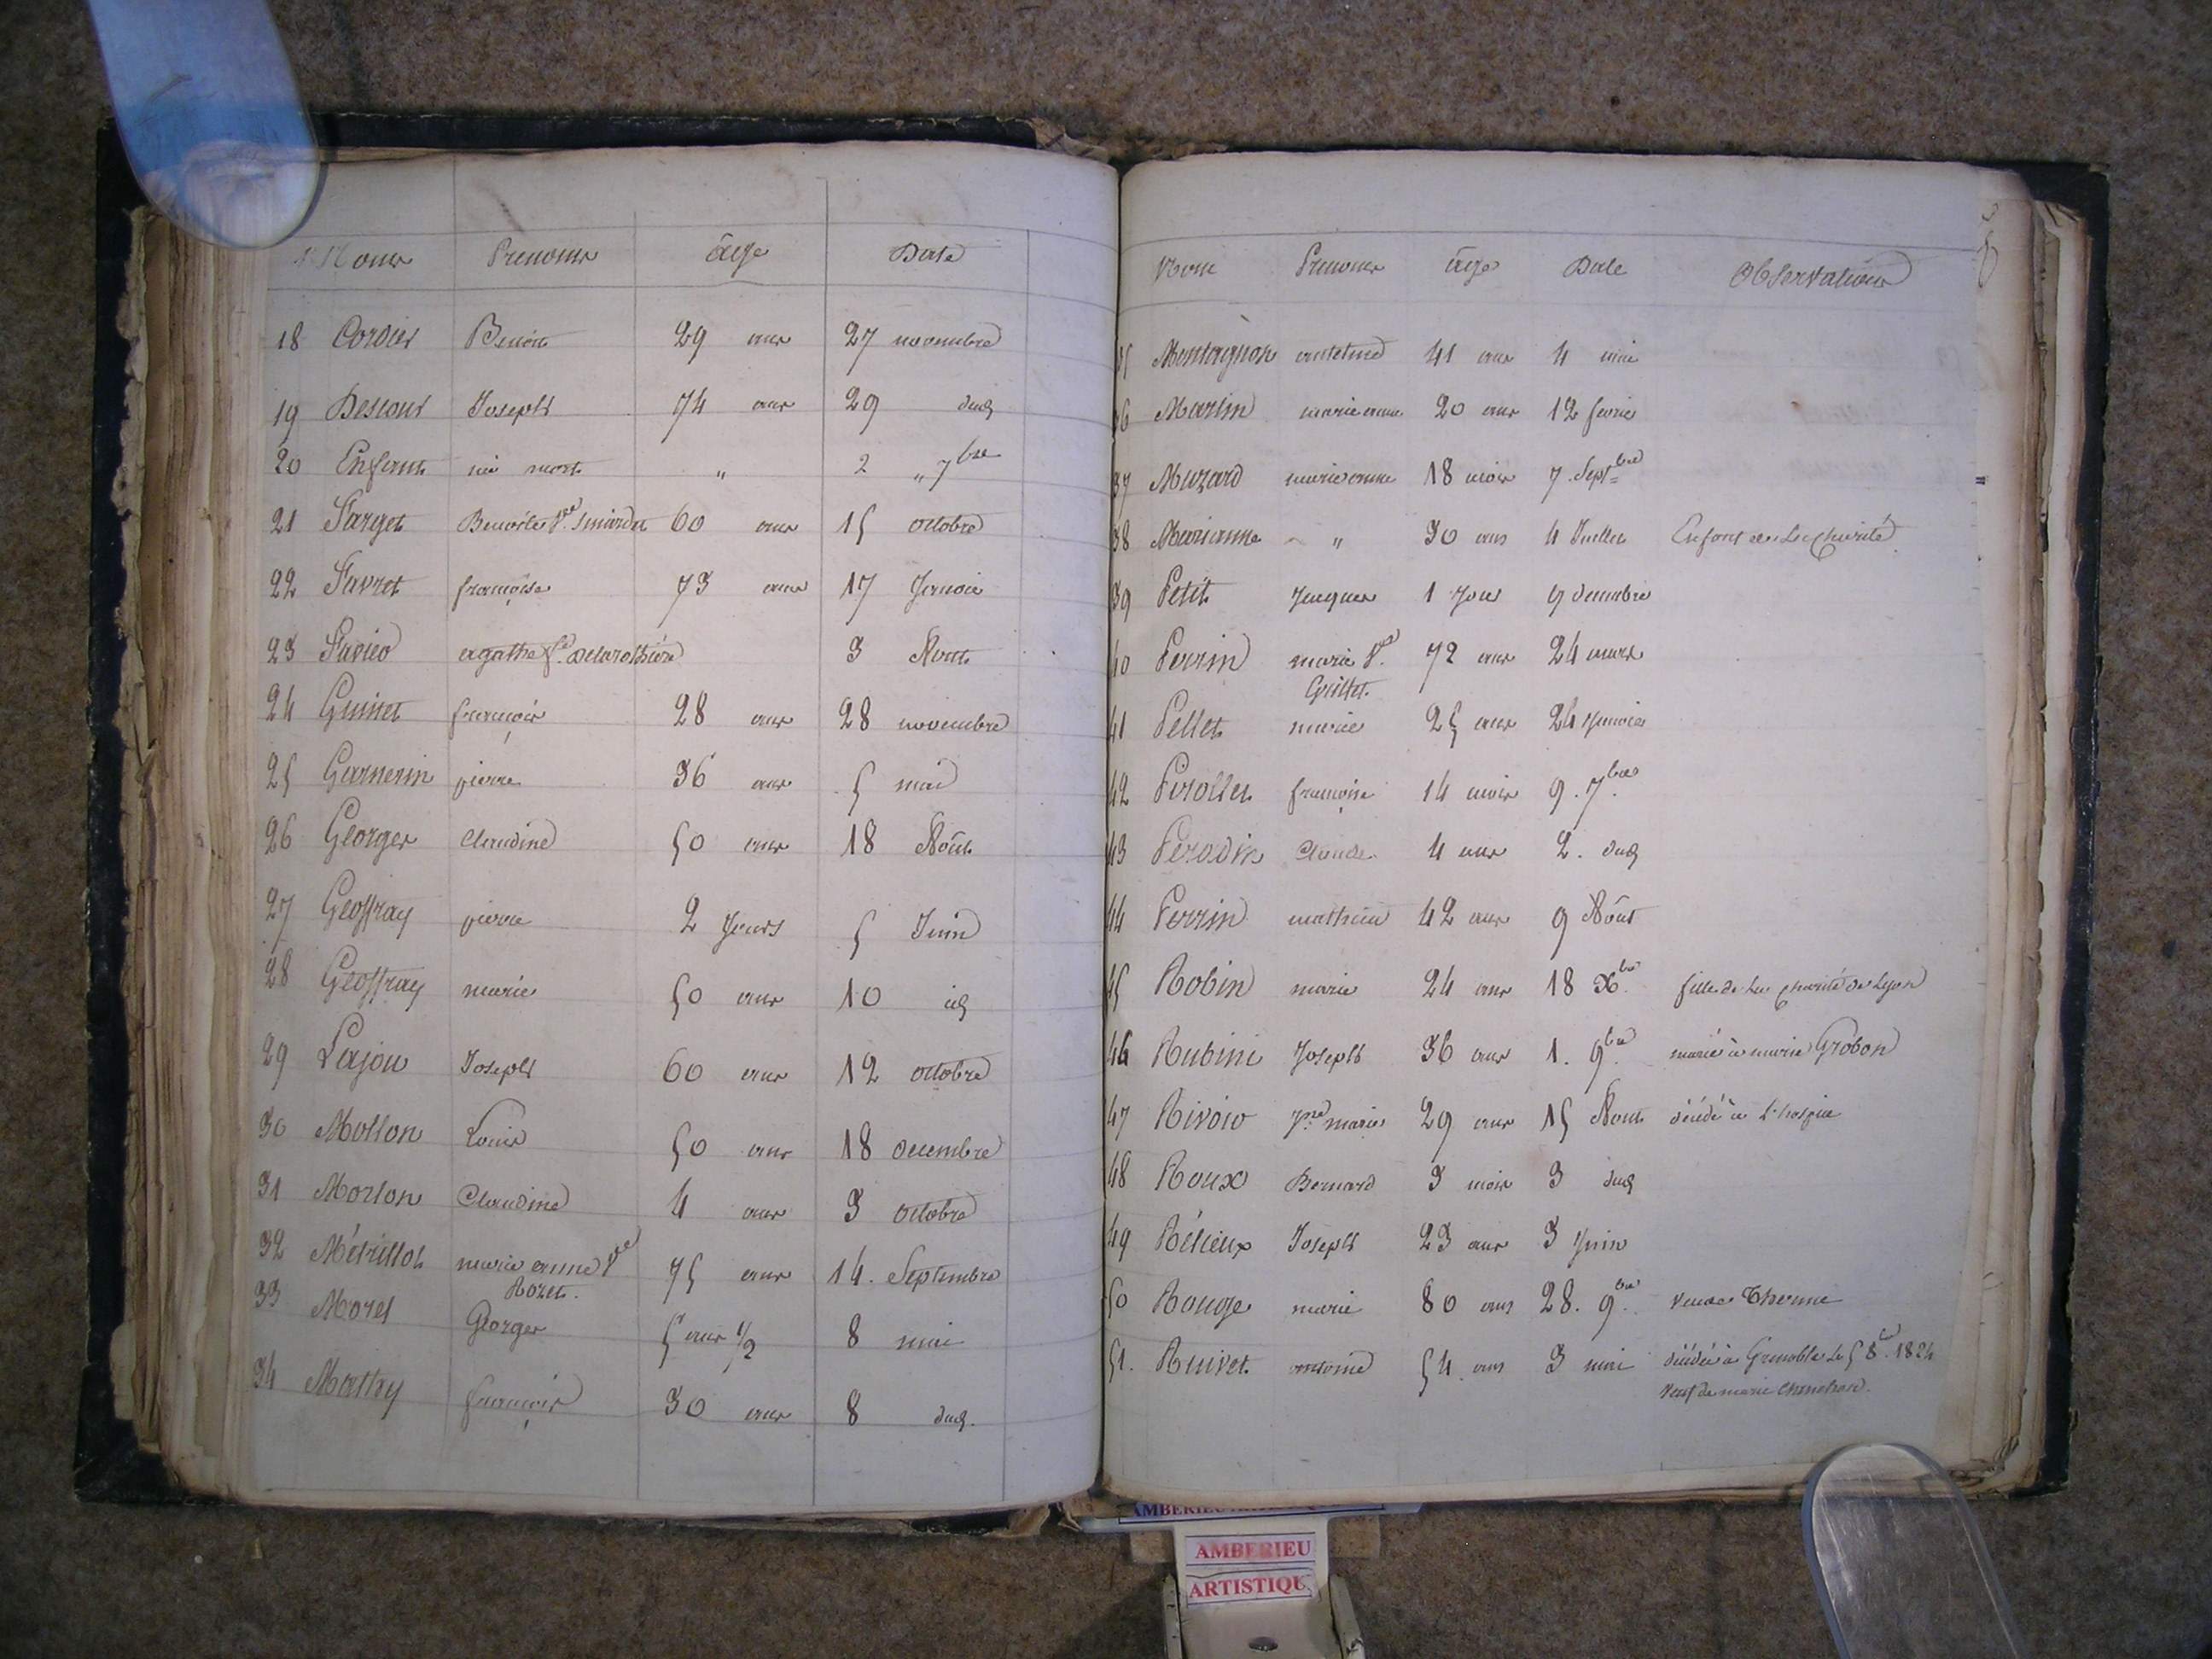 Noms Prenoms âge Date
18 Cordier Benoit 29 ans 27 novembre
19 Descour Joseph 74 ans 29 dud
20 Enfant né mort " 2 " 7bre
21 Farget Benoite Vve 60 ans 15 octobre
22 Favret françoise 73 ans 17 Janvier
23 agathe fe 3 Aout
24 Guinet françois 28 ans 28 novembre
25 Garnerin pierre 36 ans 5 mai
26 Georges Claudine 50 ans 18 Aôut
27 Geoffray pierre 2 Jours 5 Juin
28 Geoffray marie 50 ans 10 id
29 Lajou Joseph 60 ans 12 octobre
30 Mollon Louis 50 ans 18 decembre
31 Morlon Claudine 4 ans 3 octobre
32 Métrillot marie anne Vve 75 ans 14. Septembre
Rozet.
33 Morel Georges 5 ans 1/2 8 mai
34 Mathy françois 30 ans 8 dud.
Nom Prenoms âge Date Observations
35 Montagnon antelme 41 ans 4 mai
36 Marin marie anne 20 ans 12 fevrier
37 Muzard marie anne 18 mois 7. Septbre
38 Marianne " 30 ans 4 Juillet Enfant de La Charité
39 Petit Jacques 1 Jour 9 decembre
40 Perrin marie Vve 72 ans 24 mars
Grillet.
41 Pellet marie 25 ans 24 Janvier
42 Pirollet françoise 14 mois 9. 7bre
43 Perodin Claude 4 ans 2. dud
44 Perrin mathieu 42 ans 9 Aôut
45 Robin marie 24 ans 18 Xbre fille de La Charité de Lyon
46 Rubini Joseph 36 ans 1. 9bre marié à marie Grobon
47 Rivoir marie 29 ans 15 Aout décédé à L'hospice
48 Roux Bernard 3 mois 3 dud
49 Rétieux Joseph 23 ans 3 Juin
50 Rouge marie 80 ans 28. 9bre veuve Thenne
51. Ruivet antoine 54 ans 3 mai décédé à Grenoble Le 5 8bre 1824
veuf de marie
AMBERIEU
AMBERIEU
ARTISTIQU